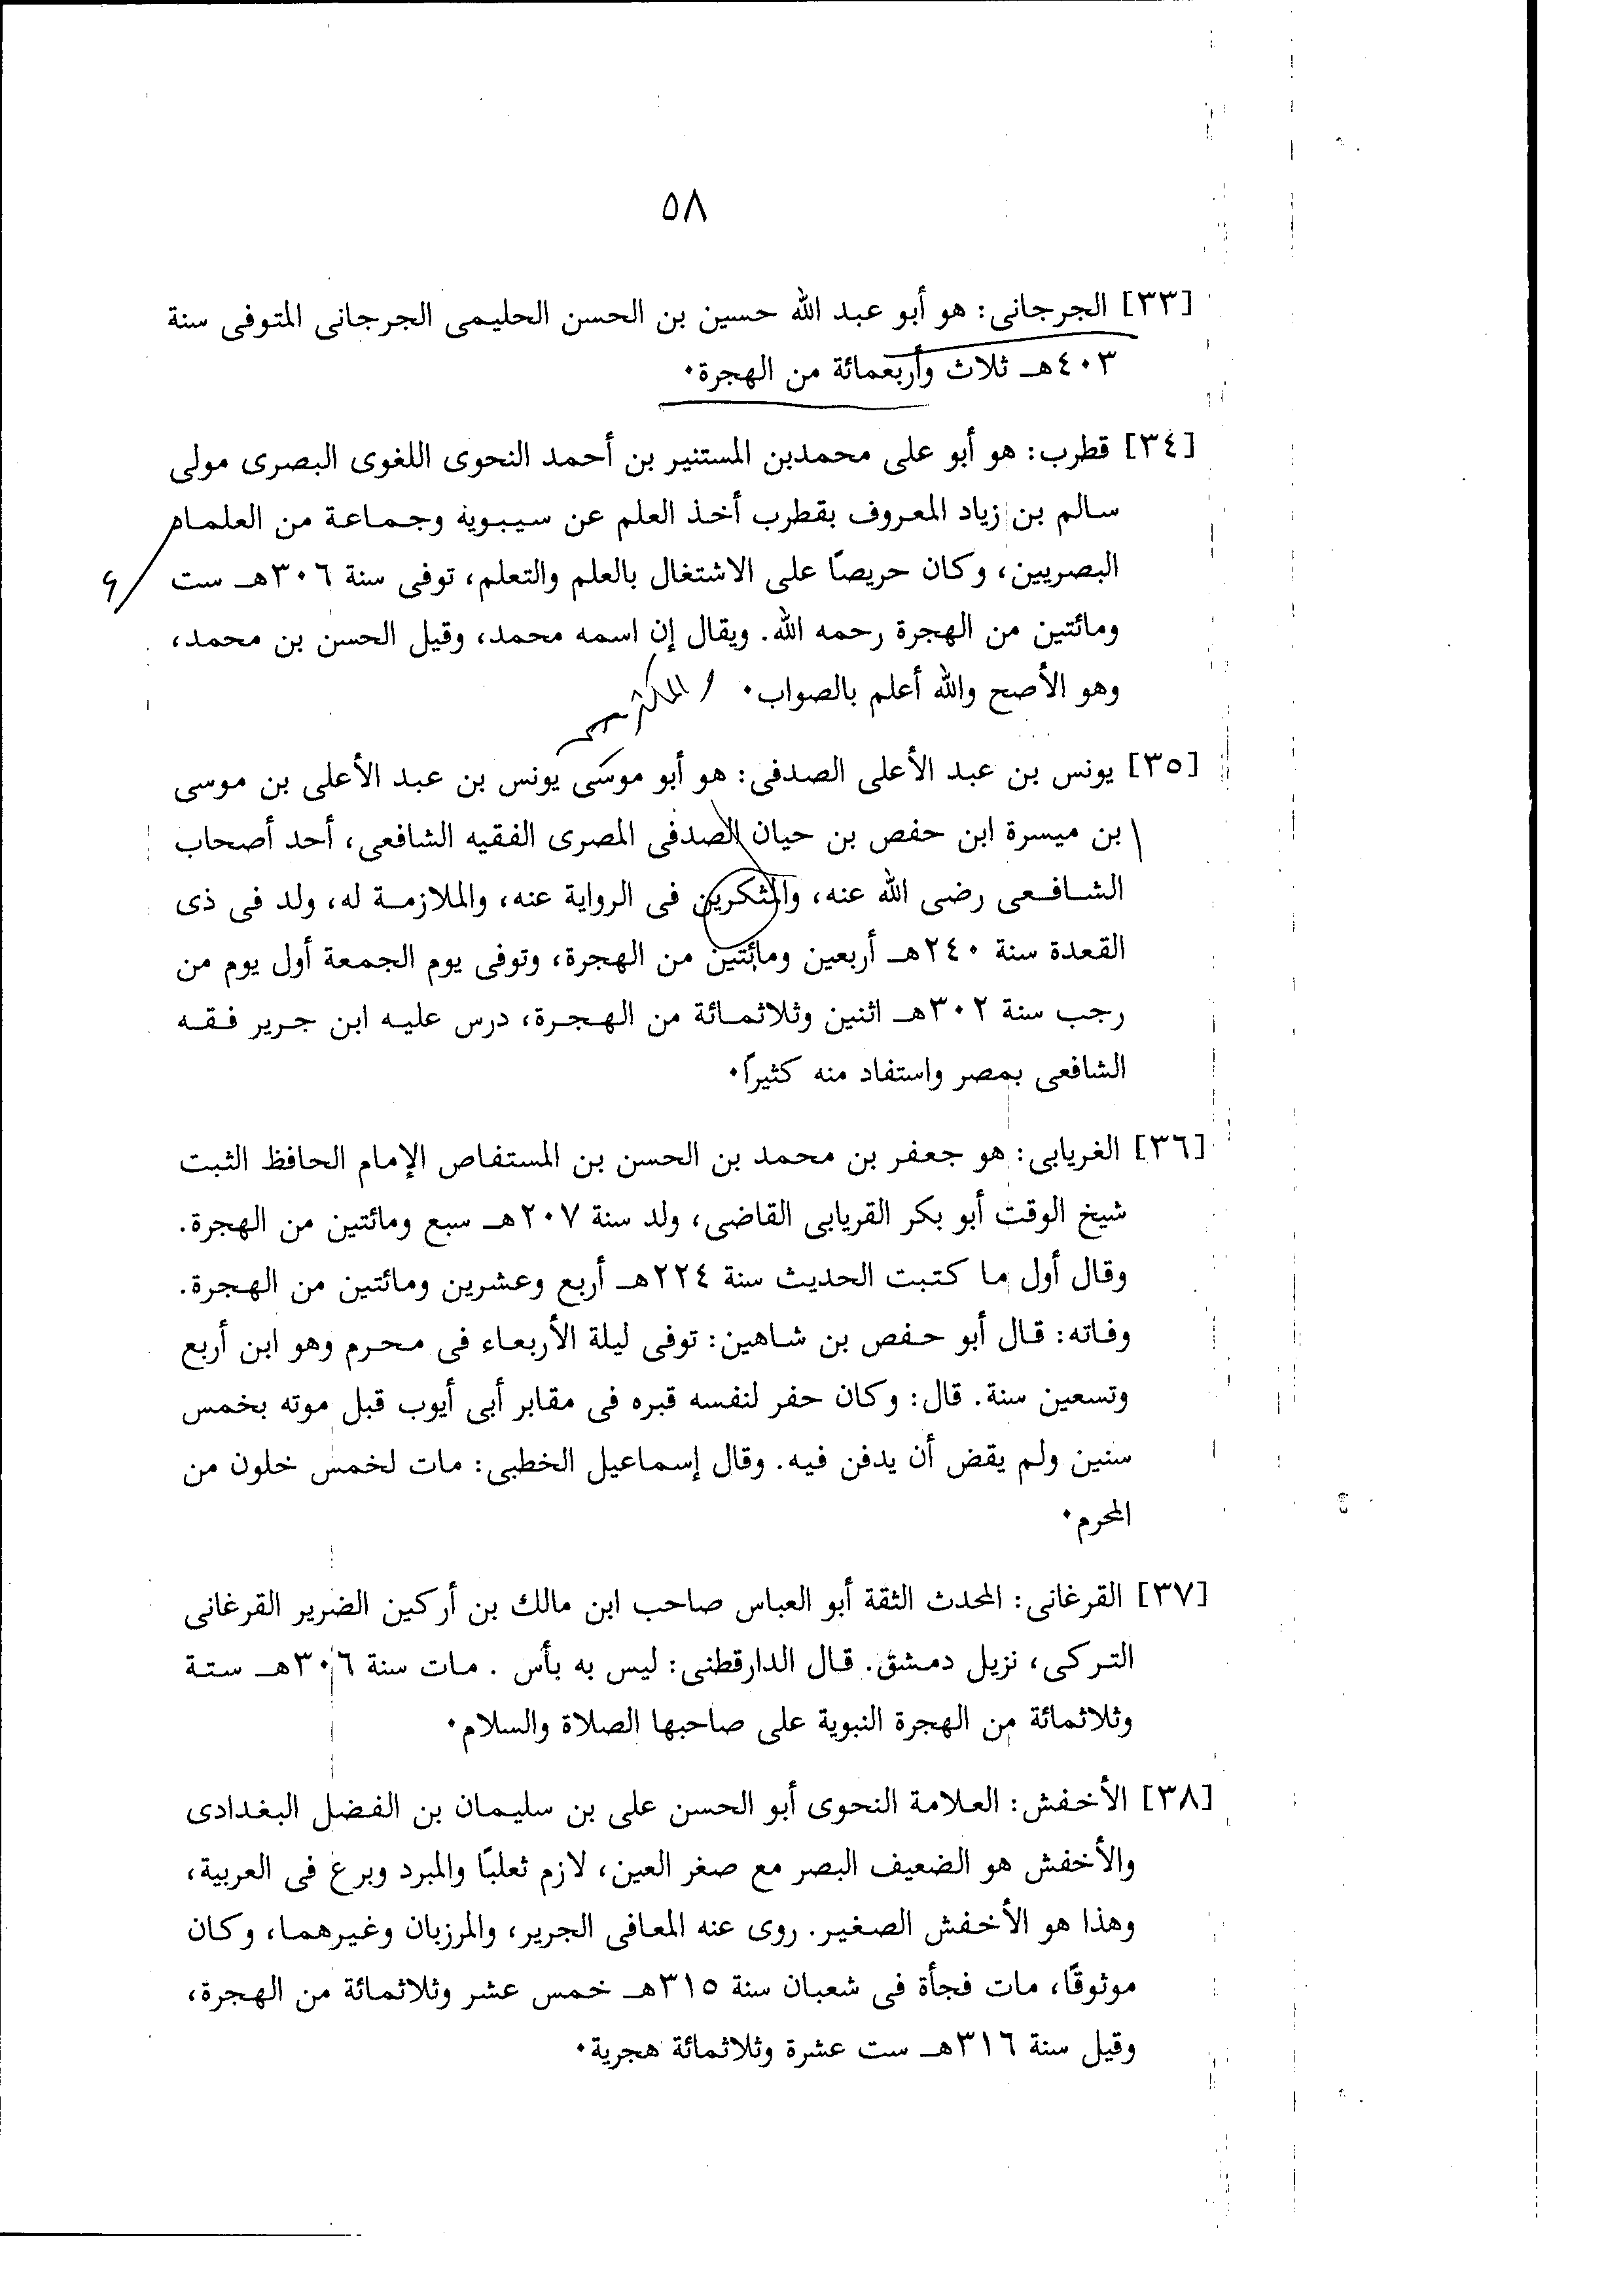 ٥٨
[٣٣] الجرجانى: هو أبو عبد الله حسين بن الحسن الحليمى الجرجانى المتوفى سنة
٤٠٣هـ ثلاث وأربعمائة من الهجرة.
[٣٤] قطرب: هو أبو على محمدبن المستنير بن أحمد النحوى اللغوى البصرى مولى
سالم بن زياد المعروف بقطرب أخذ العلم عن سيبوية وجماعة من العلماء
البصريين، وكان حريصًا على الاشتغال بالعلم والتعلم، توفى سنة ٣٠٦هـ ست
ومائتين من الهجرة رحمه الله. ويقال إن اسمه محمد، وقيل الحسن بن محمد،
وهو الأصح والله أعلم بالصواب.
[٣٥] يونس بن عبد الأعلى الصدفى: هو أبو موسى يونس بن عبد الأعلى بن موسى
بن ميسرة ابن حفص بن حيان الصدفى المصرى الفقيه الشافعى، أحد أصحاب
الشافعى رضى الله عنه، والمثكرين فى الرواية عنه، والملازمة له، ولد فى ذى
القعدة سنة ٢٤٠هـ أربعين ومائتين من الهجرة، وتوفى يوم الجمعة أول يوم من
رجب سنة ٣٠٢هـ اثنين وثلاثمائة من الهجرة، درس عليه ابن جرير فقه
الشافعى بمصر واستفاد منه كثيرًا.
[٣٦] الغريابى: هو جعفر بن محمد بن الحسن بن المستفاص الإمام الحافظ الثبت
شيخ الوقت أبو بكر القريابى القاضى، ولد سنة ٢٠٧هـ سبع ومائتين من الهجرة.
وقال أول ما كتبت الحديث سنة ٢٢٤هـ أربع وعشرين ومائتين من الهجرة.
وفاته: قال أبو حفص بن شاهين: توفى ليلة الأربعاء فى محرم وهو ابن أربع
وتسعين سنة. قال: وكان حفر لنفسه قبره فى مقابر أبى أيوب قبل موته بخمس
سنين ولم يقض أن يدفن فيه. وقال إسماعيل الخطبى: مات لخمس خلون من
المحرم.
[٣٧] القرغانى: المحدث الثقة أبو العباس صاحب ابن مالك بن أركين الضرير القرغانى
التركى، نزيل دمشق. قال الدارقطنى: ليس به بأس . مات سنة ٣٠٦هـ ستة
وثلاثمائة من الهجرة النبوية على صاحبها الصلاة والسلام.
[٣٨] الأخفش: العلامة النحوى أبو الحسن على بن سليمان بن الفضل البغدادى
والأخفش هو الضعيف البصر مع صغر العين، لازم ثعلبًا والمبرد وبرغ فى العربية،
وهذا هو الأخفش الصغير. روى عنه المعافى الجرير، والمرزبان وغيرهما، وكان
موثوقًا، مات فجأة فى شعبان سنة ٣١٥هـ خمس عشر وثلاثمائة من الهجرة،
وقيل سنة ٣١٦هـ ست عشرة وثلاثمائة هجرية.